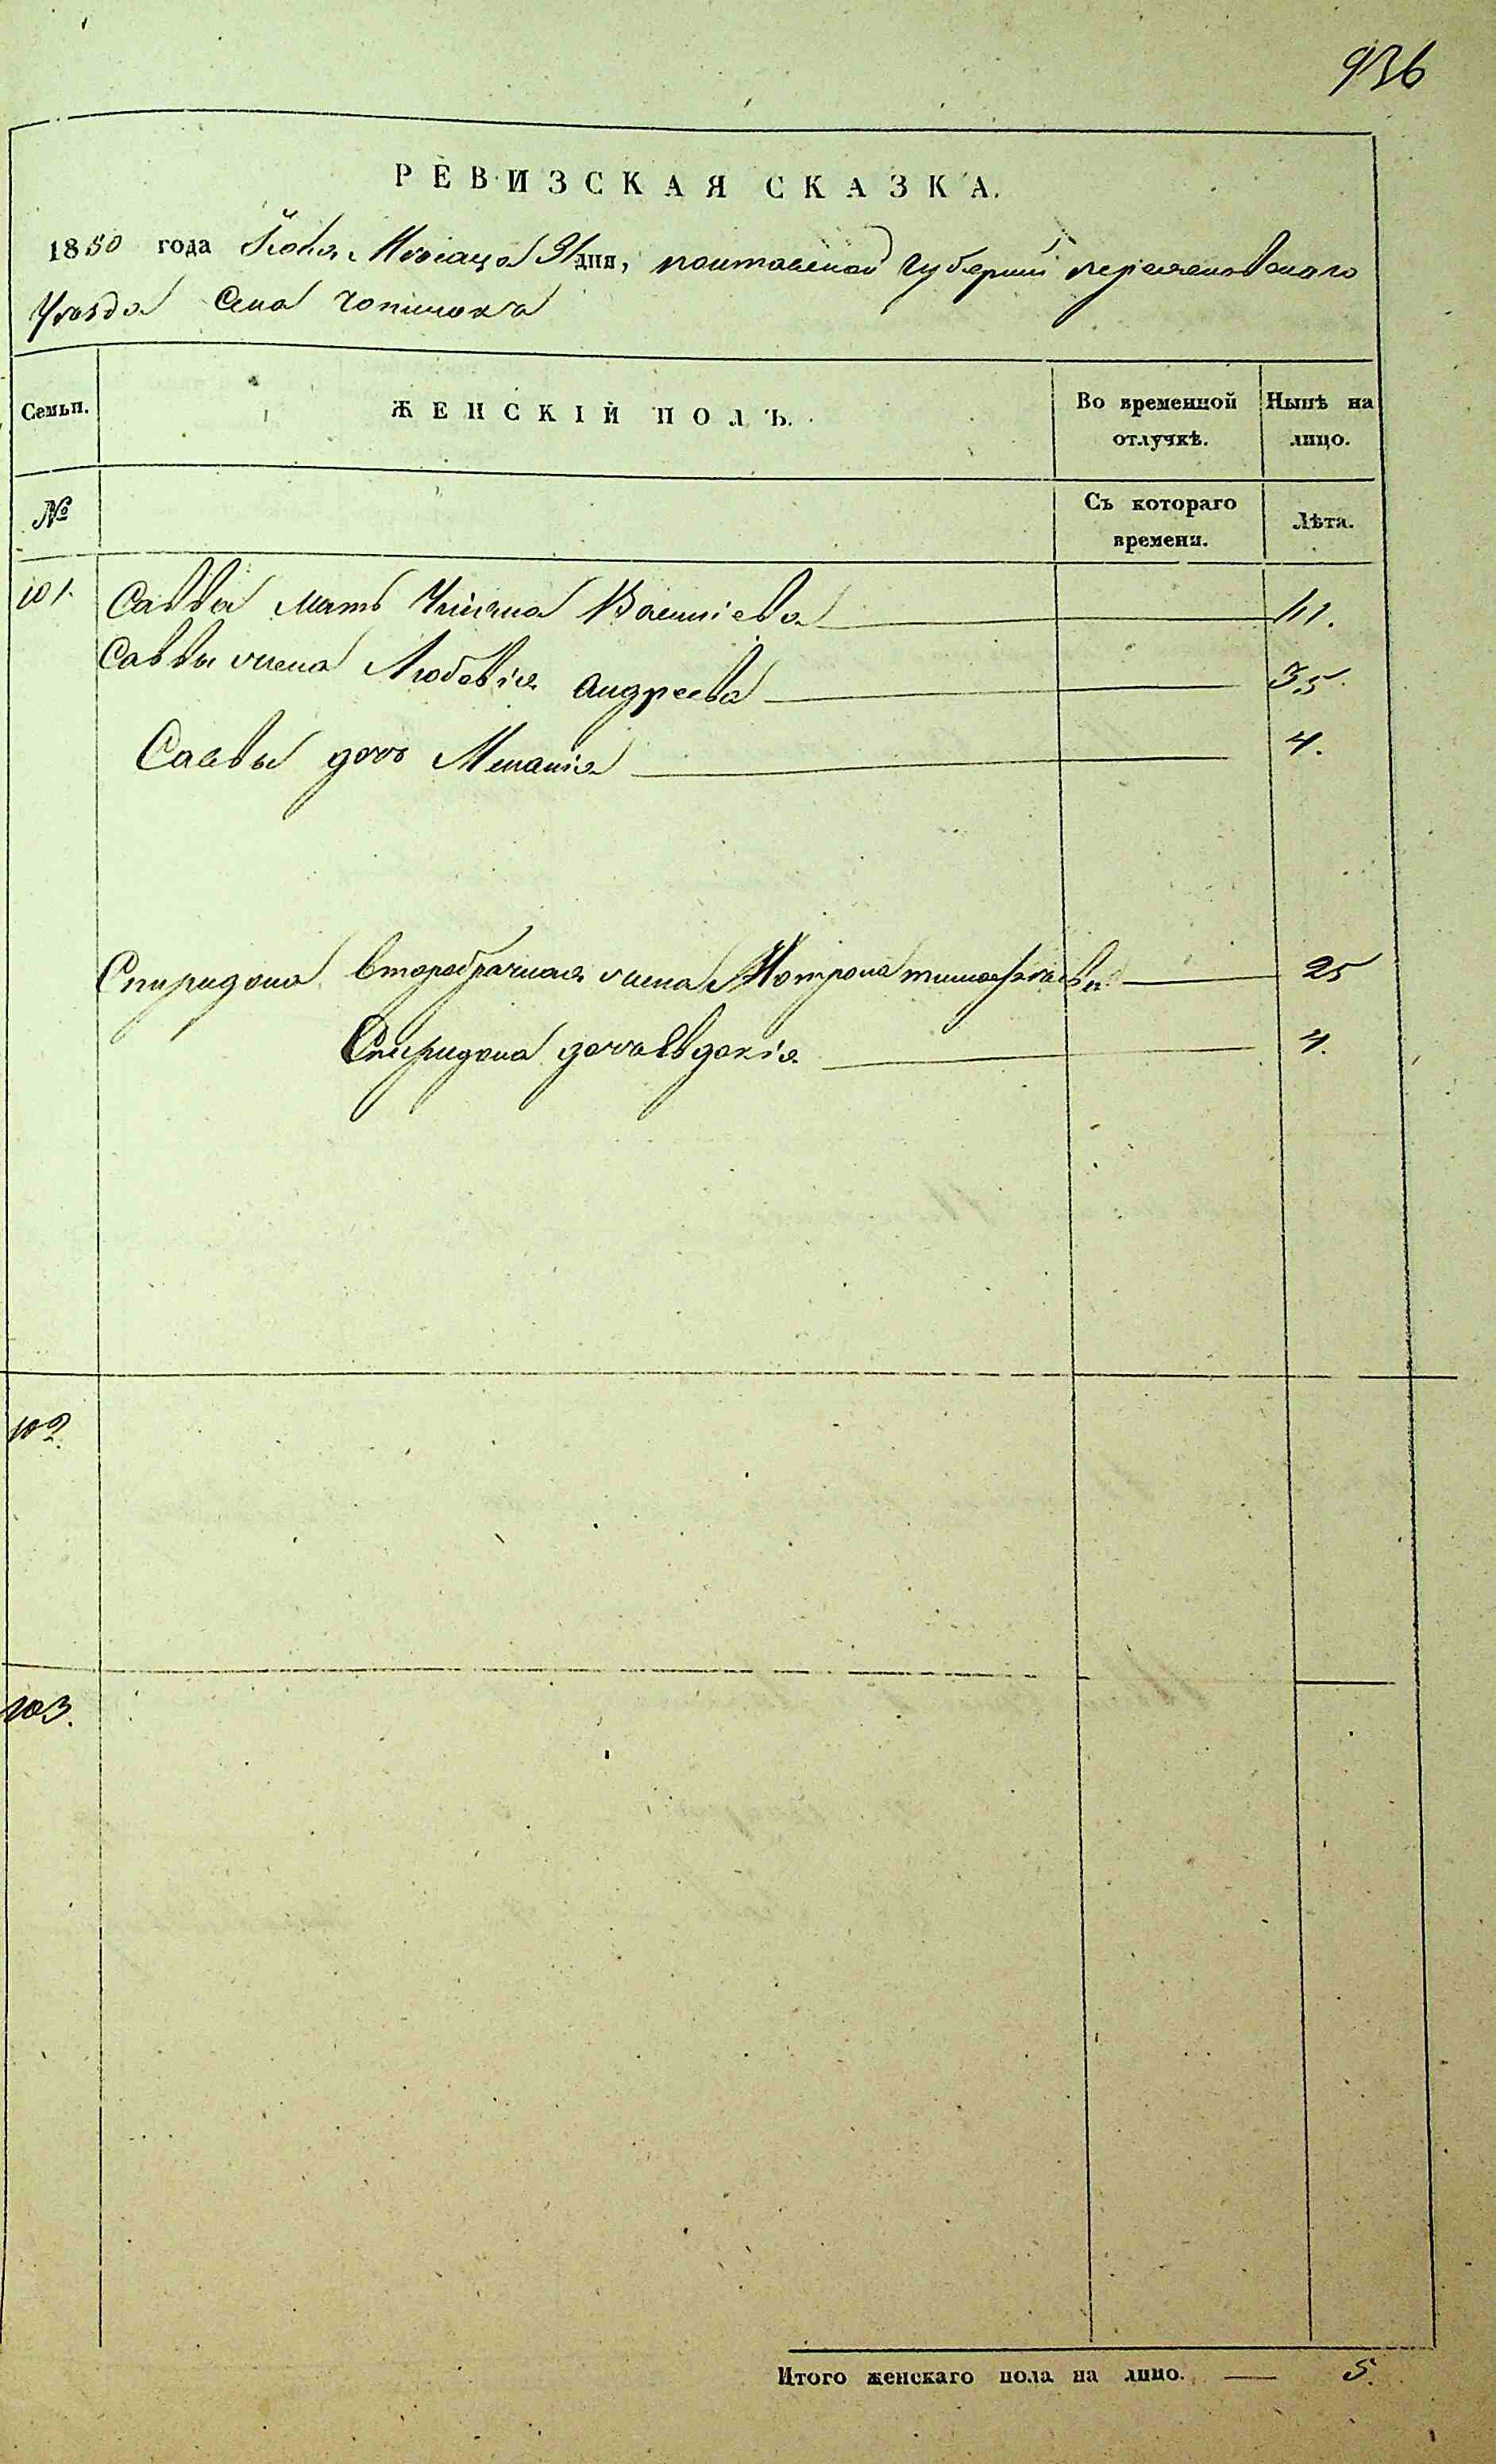 936
РЕВИЗСКАЯ СКАЗКА.
1850 года Мѣсяца дня, полтавской губерніи переяславскаго
Уѣзда Села
Семьи.
ЖЕНСКІЙ ПОЛЪ.
Во временной отлучкѣ.
Нынѣ на лицо.
№
Съ котораго времени.
Лѣта.
101.
Саввы мать Василіева
Саввы жена Любовія андреева 35
Саввы дочь Меланія 4.
Спиридона второбрачная жена Мотрона тимофѣева 25
Спиридона дочь Евдокія 4.
102.
103.
Итого женскаго пола на лицо. — 5.